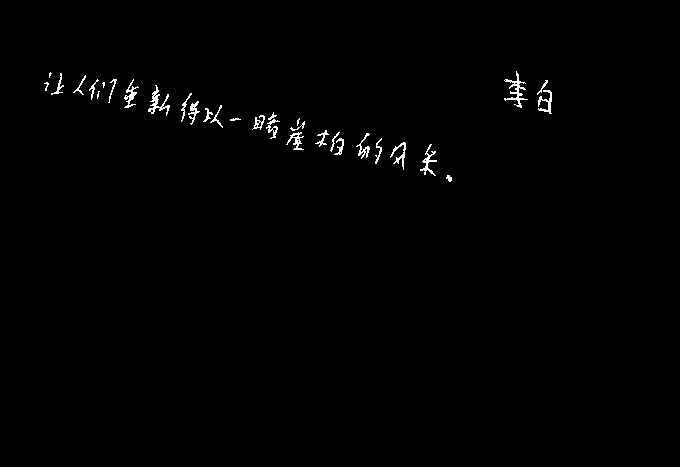 让人们重新得以一睹崖柏的风采。
李白